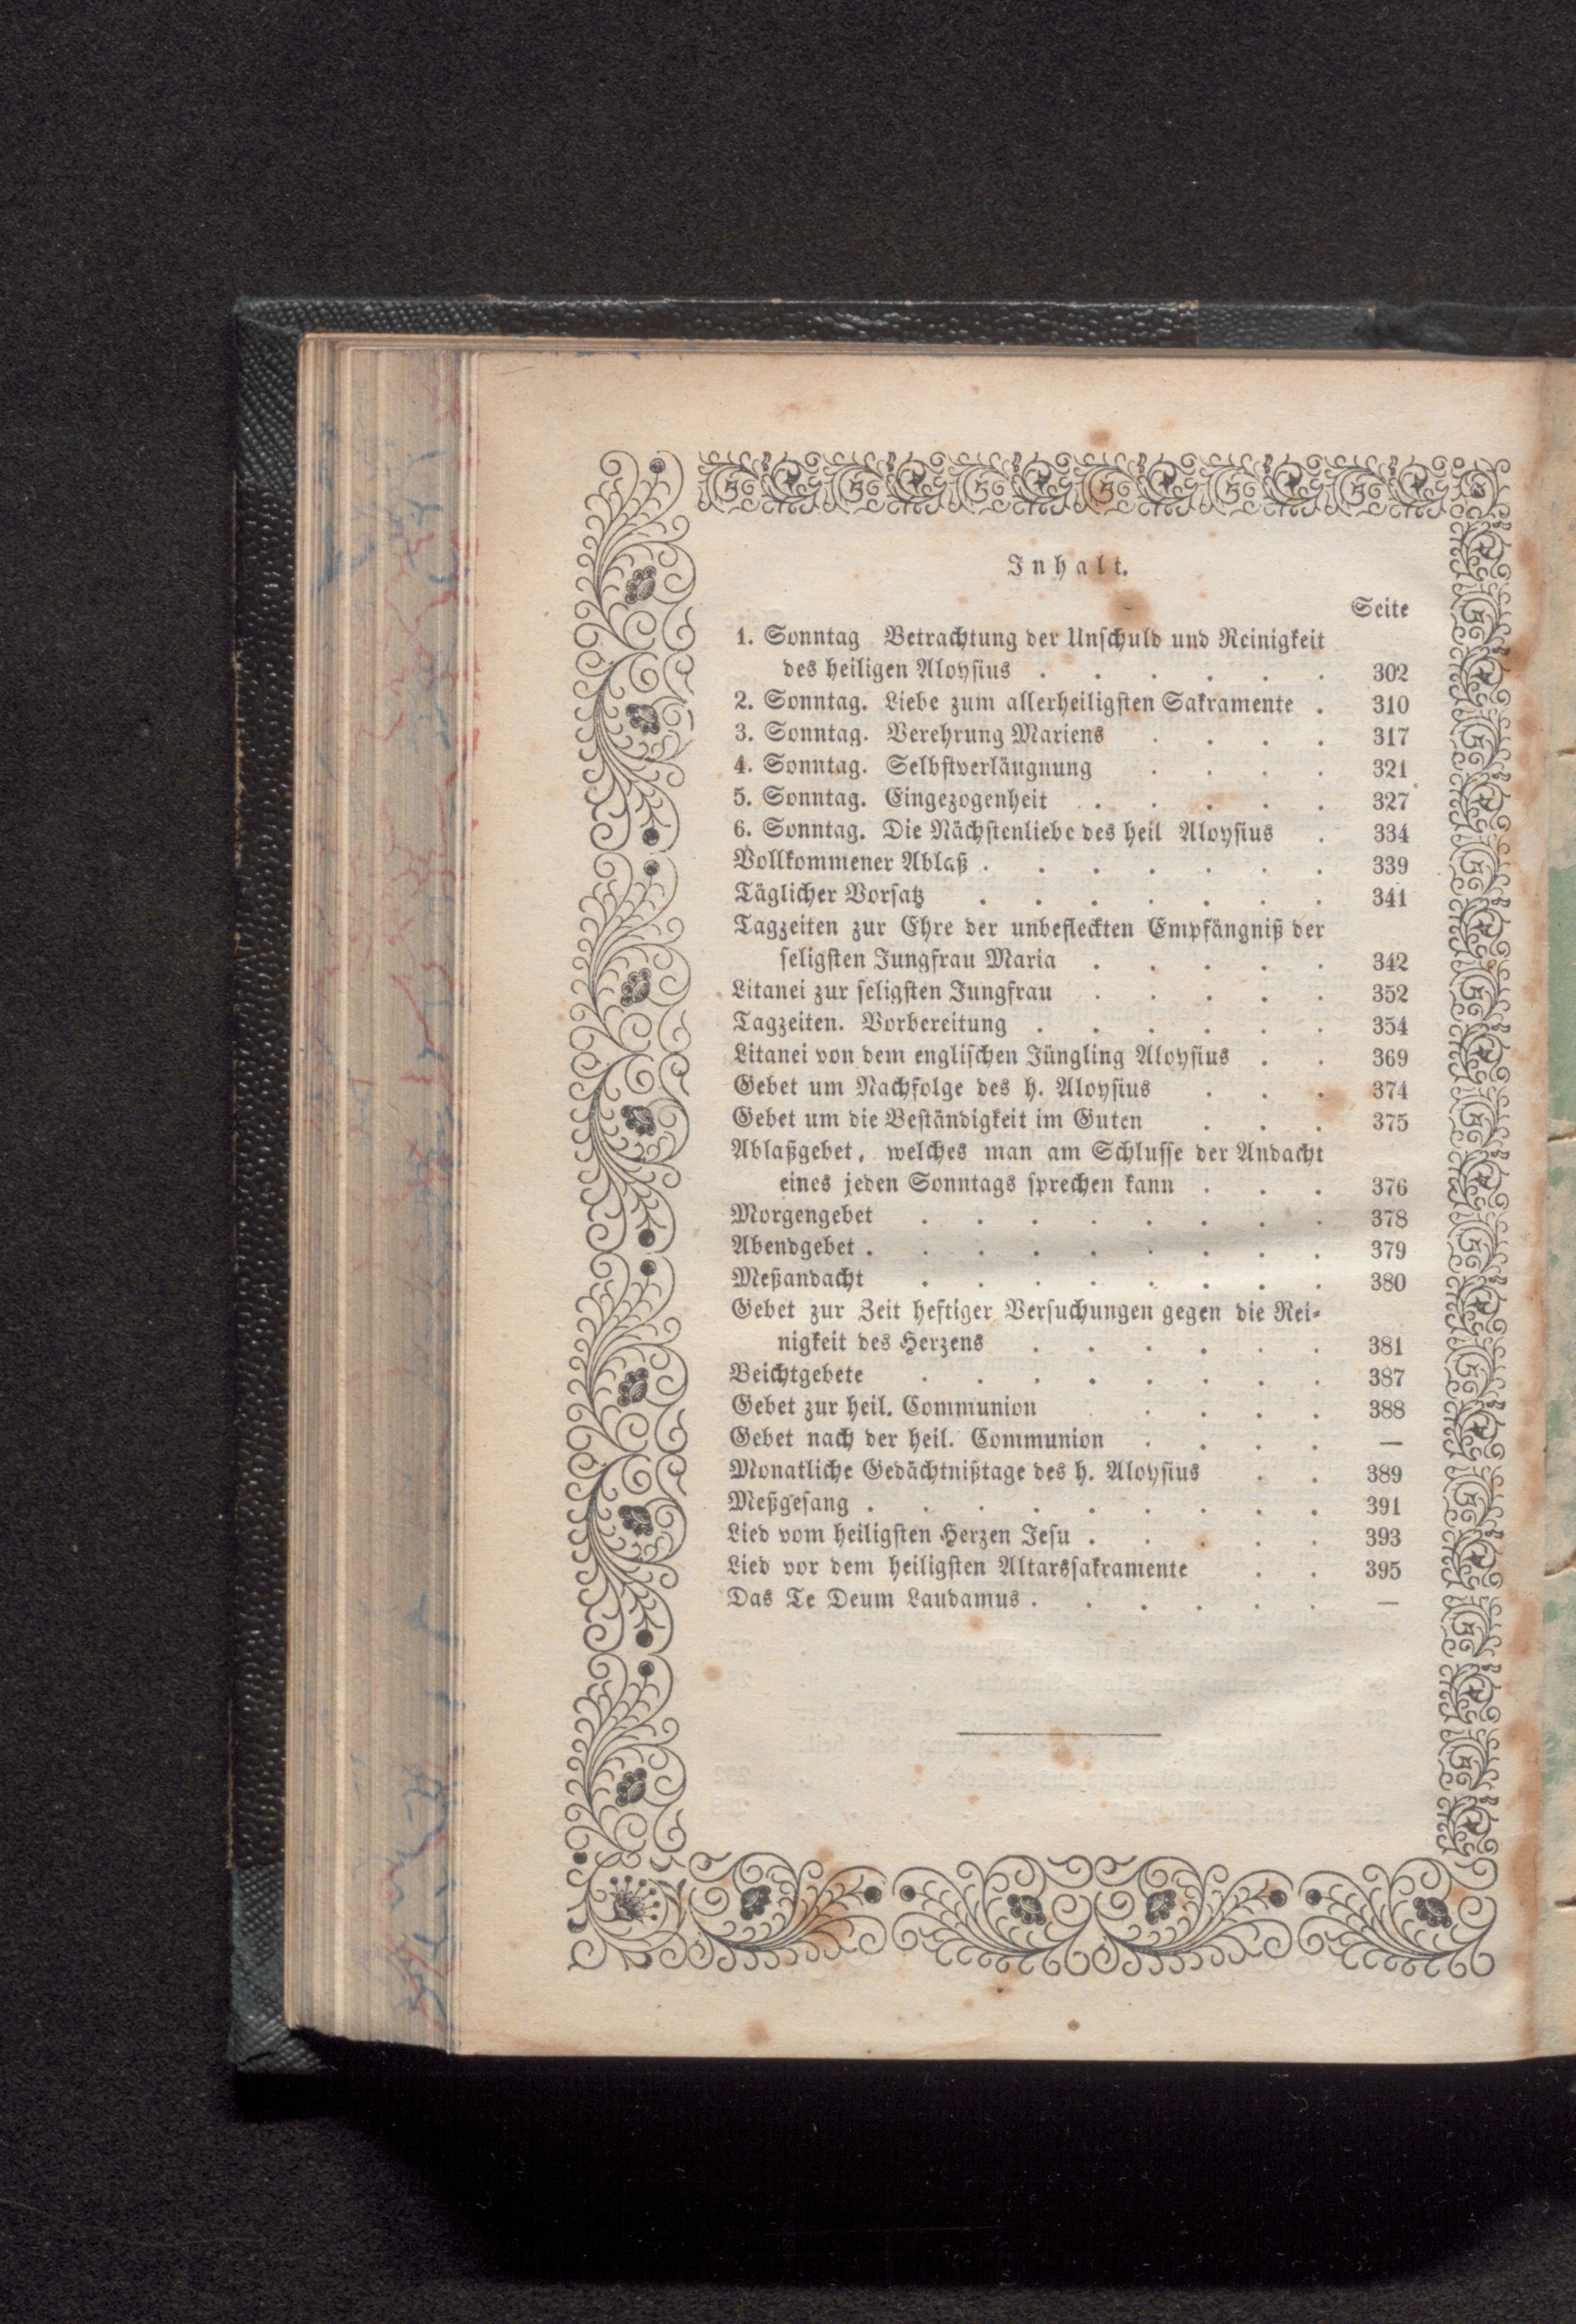 Inhalt.
Seite
1. Sonntag Betrachtung der Unschuld und Reinigkeit
des heiligen Aloysius . . . . . . 302
2. Sonntag. Liebe zum allerheiligsten Sakramente . 310
3. Sonntag. Verehrung Mariens . . . . 317
4. Sonntag. Selbstverläugnung . . . . 321
5. Sonntag. Eingezogenheit . . . . . 327
6. Sonntag. Die Nächstenliebe des heil Aloysius . 334
Vollkommener Ablaß . . . . . . . 339
Täglicher Vorsatz . . . . . . . 341
Tagzeiten zur Ehre der unbefleckten Empfängniß der
seligsten Jungfrau Maria . . . . . 342
Litanei zur seligsten Jungfrau . . . . . 352
Tagzeiten. Vorbereitung . . . . . . 354
Litanei von dem englischen Jüngling Aloysius . . 369
Gebet um Nachfolge des h. Aloysius . . . 374
Gebet um die Beständigkeit im Guten . . . 375
Ablaßgebet, welches man am Schlusse der Andacht
eines jeden Sonntags sprechen kann . . . 376
Morgengebet . . . . . . . . 378
Abendgebet . . . . . . . . . 379
Meßandacht . . . . . . . . 380
Gebet zur Zeit heftiger Versuchungen gegen die Rei-
nigkeit des Herzens . . . . . . 381
Beichtgebete . . . . . . . . 387
Gebet zur heil. Communion . . . . 388
Gebet nach der heil. Communion . . . . —
Monatliche Gedächtnißtage des h. Aloysius . . 389
Meßgesang . . . . . . . . . 391
Lied vom heiligsten Herzen Jesu . . . . . 393
Lied vor dem heiligsten Altarssakramente . . 395
Das Te Deum Laudamus . . . . . . —